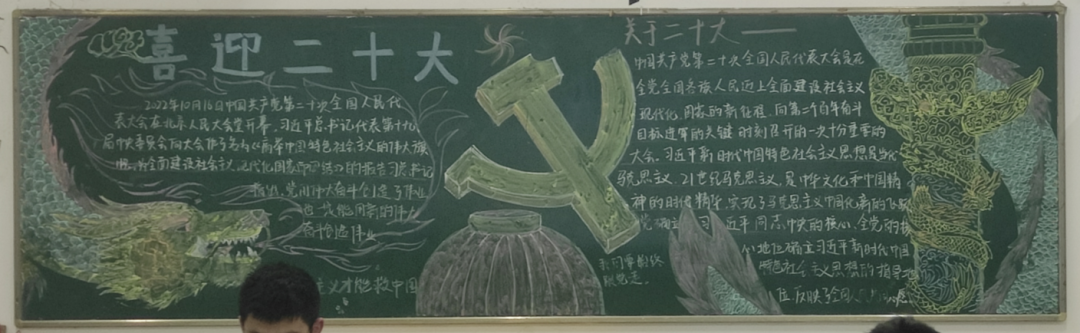 喜迎二十大
2022年10月16日中国共产党第二十次全国人民代
表大会在北京人民大会堂开幕。习近平总书记代表第十九
届中央委员会向大会作了为《高举中国特色社会主义的伟大旗
全面建设社会主义现代化国家
党用伟大奋斗创造了
定能用新的伟大
奋斗创造伟业
主义才能救中国
关于二十大——
中国共产党第二十次全国人民代表大会是在
全党全国各族人民迈上全面建设社会主义
现代化国家的新征程,向第二个百年奋斗
目标进军的关键时刻召开的一次十分重要的
大会。习近平新时代中国特色社会主义思想是当代
马克思主义、21世纪马克思主义,是中华文化和中国精
神的时代精华,实现了马克思主义中国化新的飞跃
党确立习近平同志党中央的核心、全党的核
心地位,确立习近平新时代中国
特色社会主义思想的指导
位,反映了全国
我们要始终
跟党走。